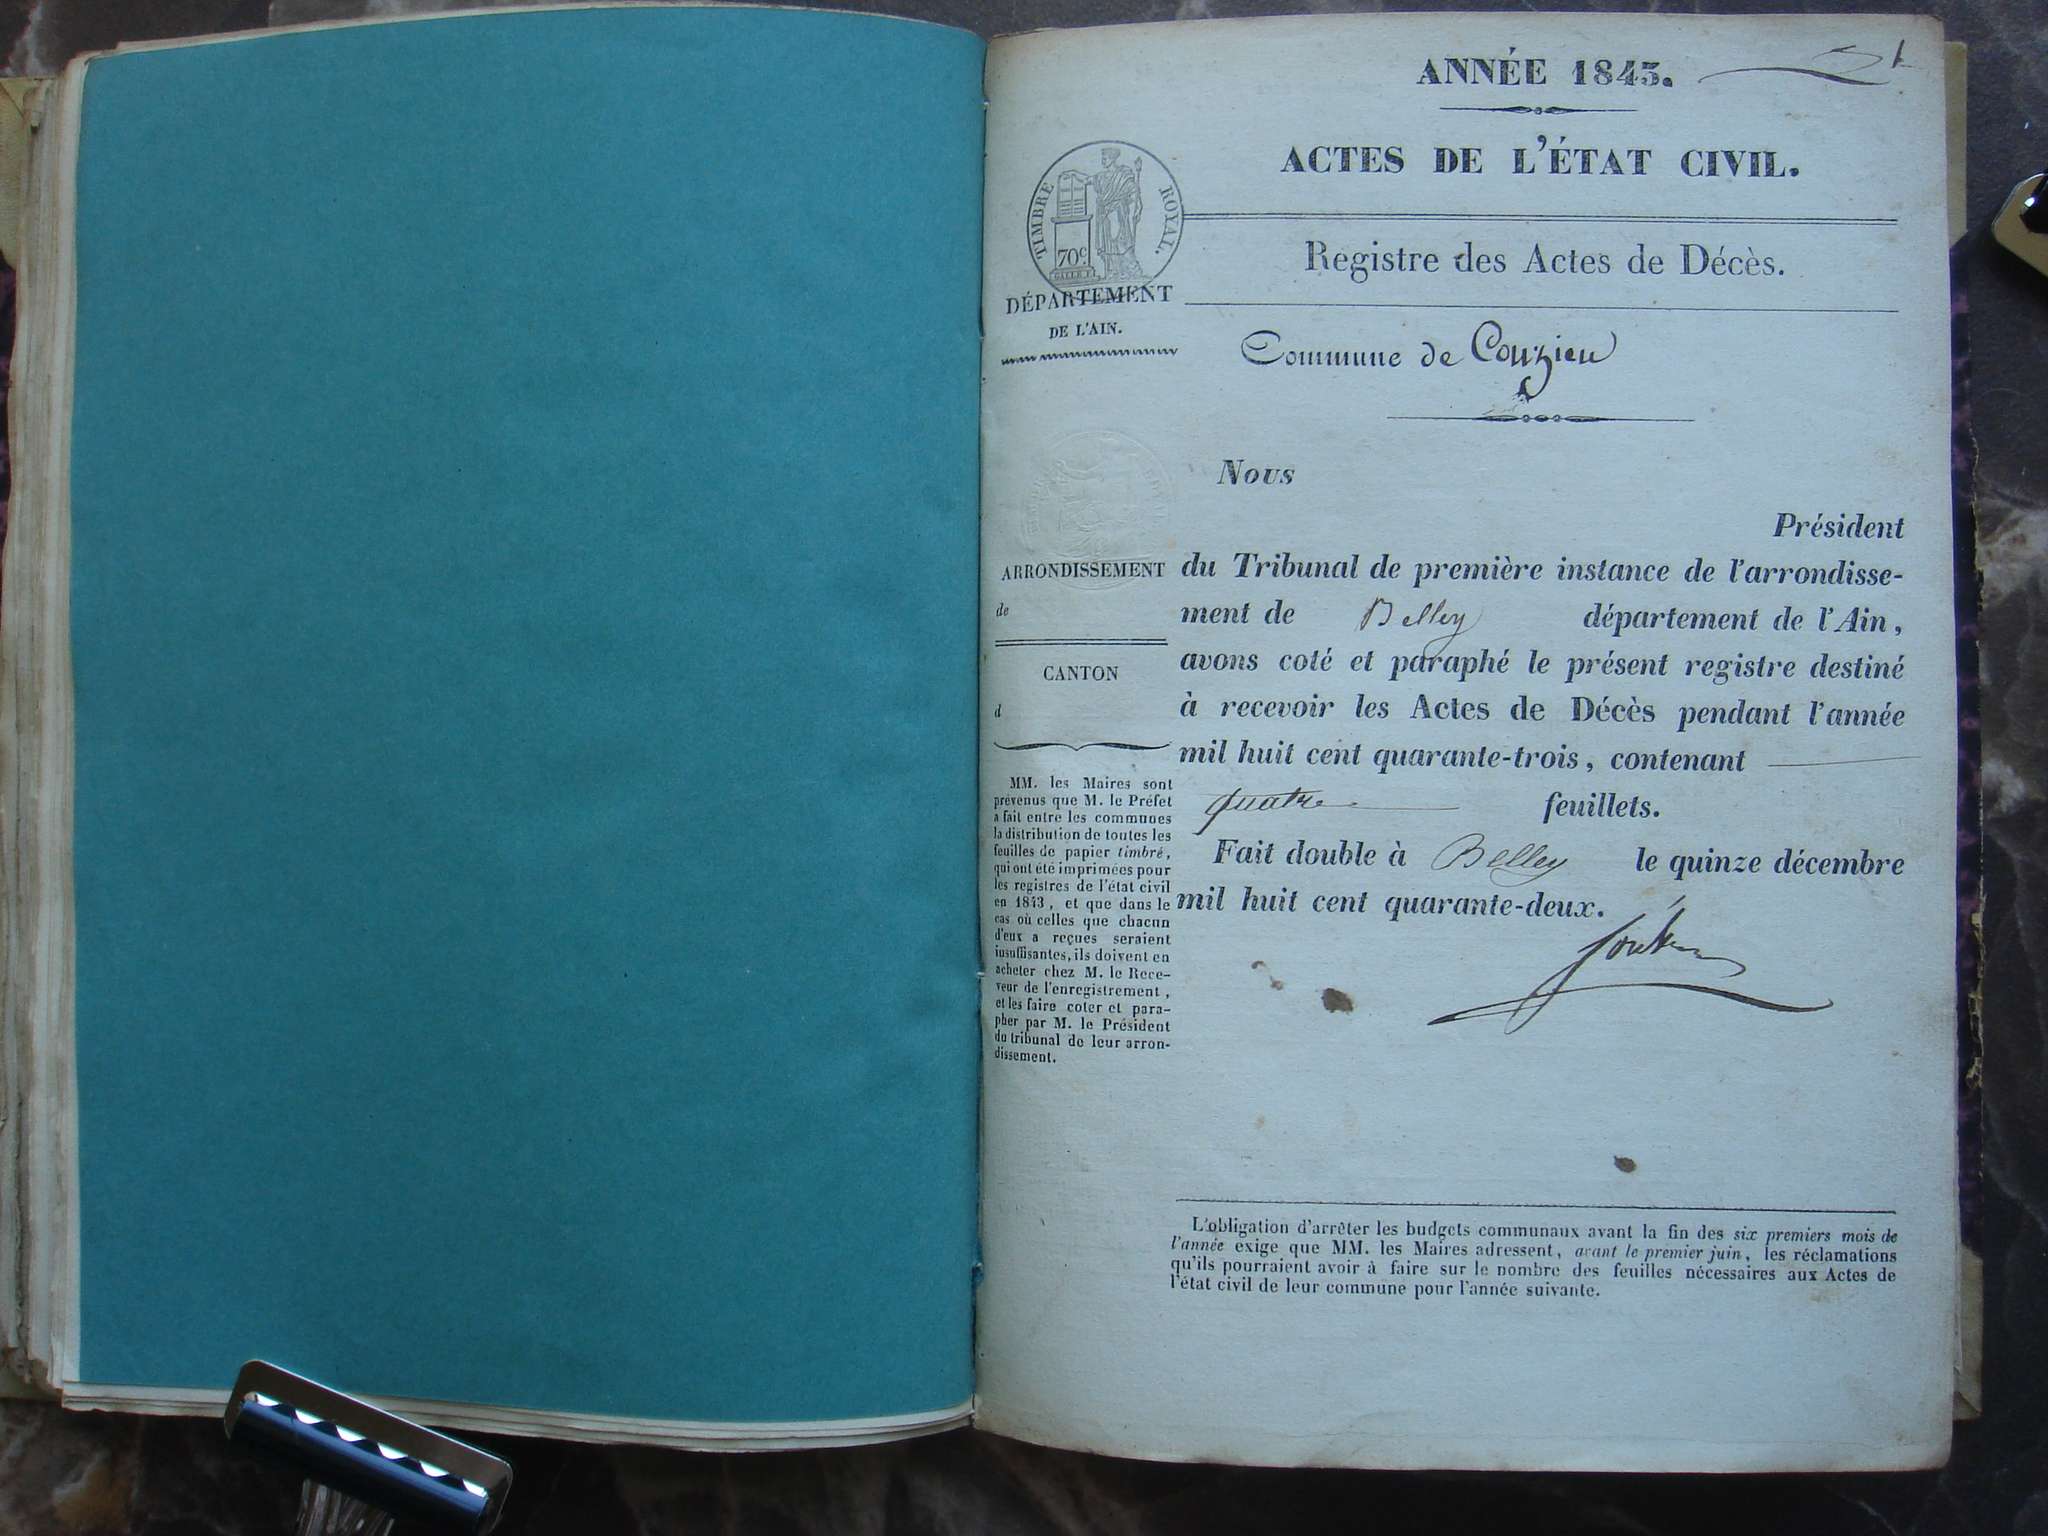 1
ANNÉE 1843.
ACTES DE L'ÉTAT CIVIL.
TIMBRE ROYAL.
70c
Registre des Actes de Décès.
DÉPARTEMENT
DE L'AIN.
Commune de Conzieu
Nous
Président
du Tribunal de première instance de l'arrondisse-
ment de Belley département de l'Ain,
avons coté et paraphé le présent registre destiné
à recevoir les Actes de Décès pendant l'année
mil huit cent quarante-trois, contenant
quatre feuillets.
Fait double à Belley le quinze décembre
mil huit cent quarante-deux.
ARRONDISSEMENT
de
CANTON
d
MM. les Maires sont
prévenus que M. le Préfet
a fait entre les communes
la distribution de toutes les
feuilles de papier timbré,
qui ont été imprimées pour
les registres de l'état civil
en 1843, et que dans le
cas où celles que chacun
d'eux a reçues seraient
insuffisantes, ils doivent en
acheter chez M. le Rece-
veur de l'enregistrement,
et les faire coter et para-
pher par M. le Président
du tribunal de leur arron-
dissement.
L'obligation d'arrêter les budgets communaux avant la fin des six premiers mois de
l'année exige que MM. les Maires adressent, avant le premier juin, les réclamations
qu'ils pourraient avoir à faire sur le nombre des feuilles nécessaires aux Actes de
l'état civil de leur commune pour l'année suivante.